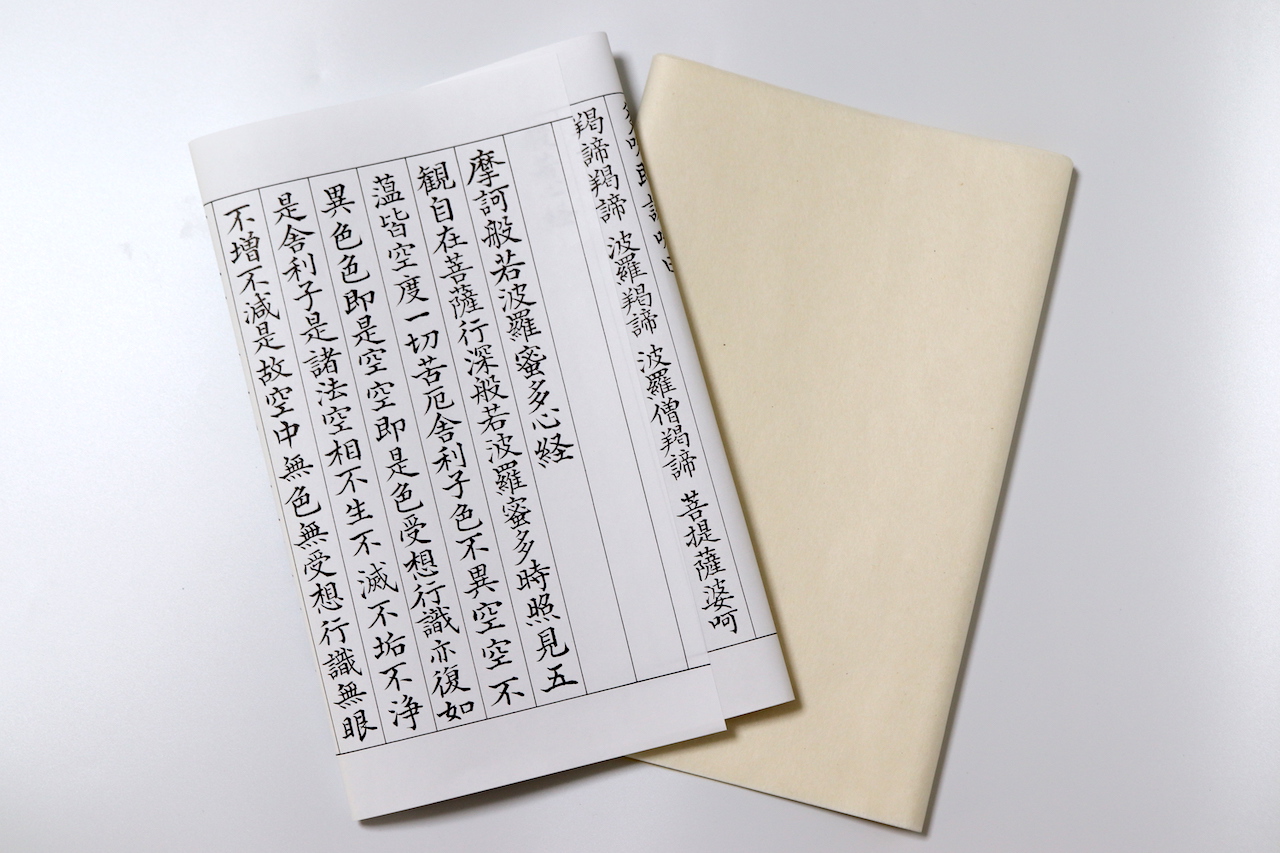 羯諦羯諦 波羅羯諦 波羅僧羯諦 菩提薩婆呵
摩訶般若波羅蜜多心経
観自在菩薩行深般若波羅蜜多時照見五
薀皆空度一切苦厄舎利子色不異空空不
異色色即是空空即是色受想行識亦復如
是舎利子是諸法空相不生不滅不垢不浄
不増不減是故空中無色無受想行識無眼